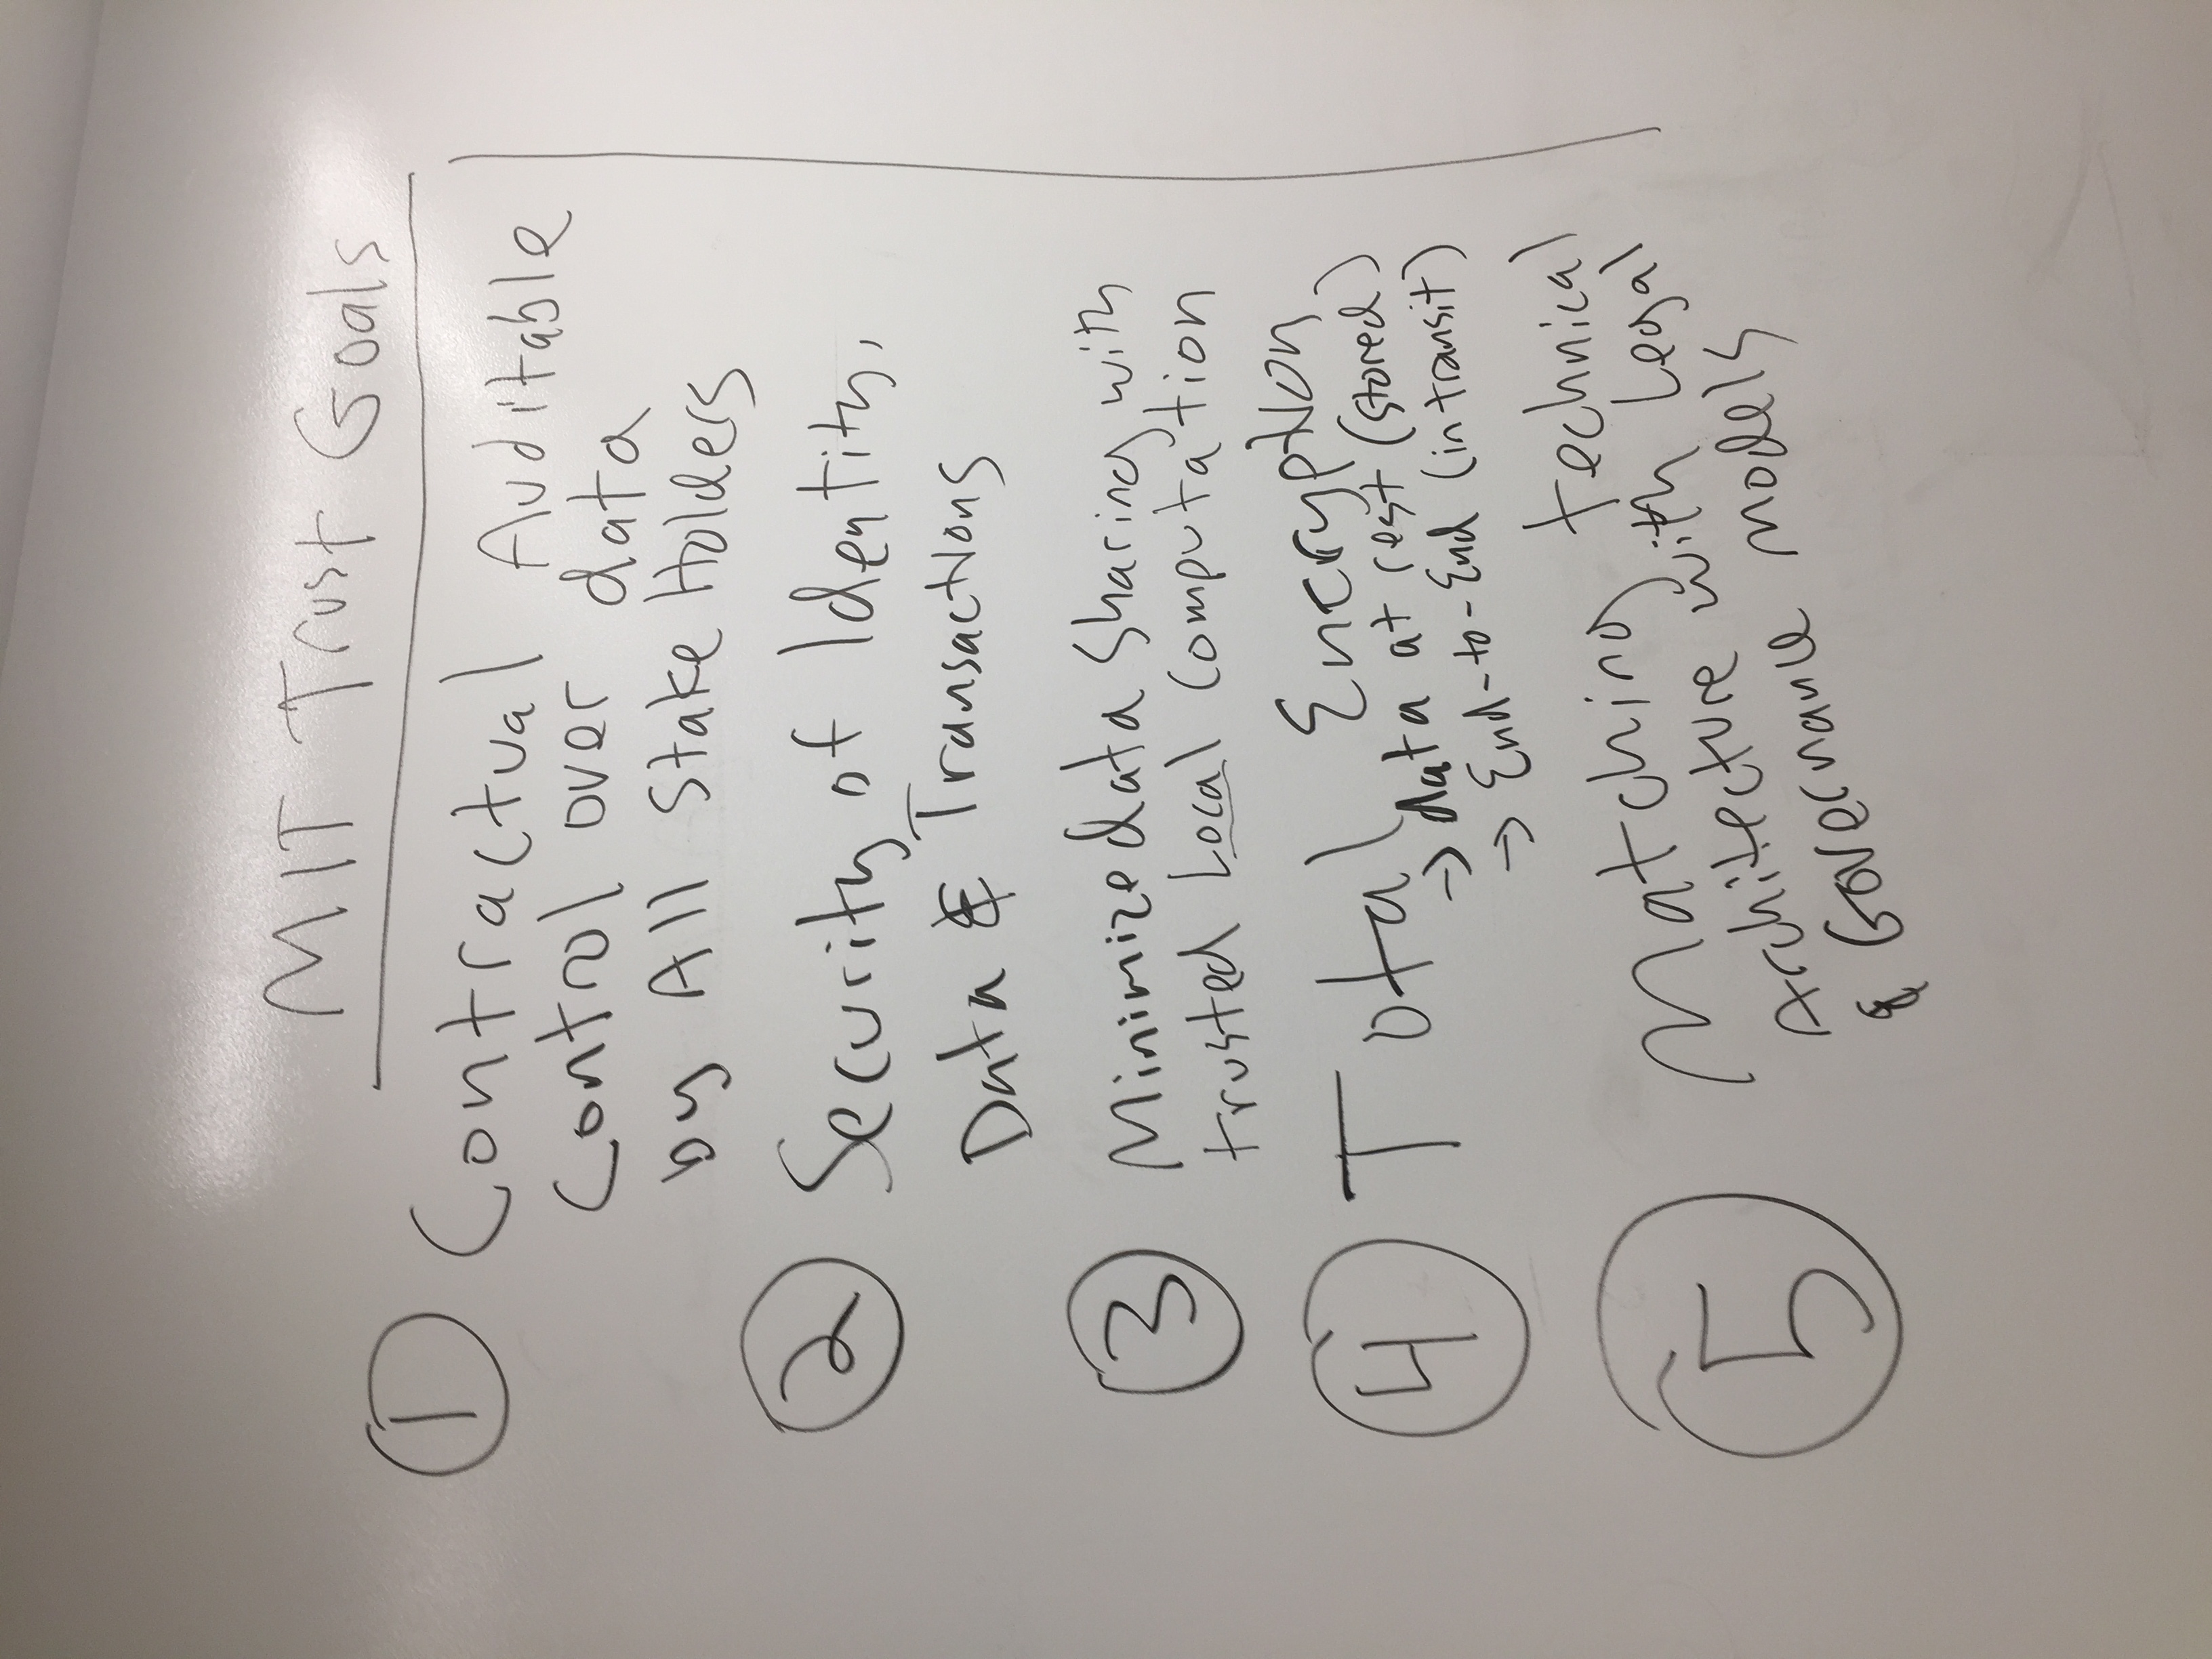 MIT Trust Goals
① Contractual Auditable
Control over data
by All Stake Holders
② Security of Identity,
Data & Transactions
③ Minimize data sharing with
trusted Local Computation
④ Total Encryption
→ data at rest (stored)
→ End-to-End (in transit)
⑤ Matching technical
Architecture with Legal
& Governance models